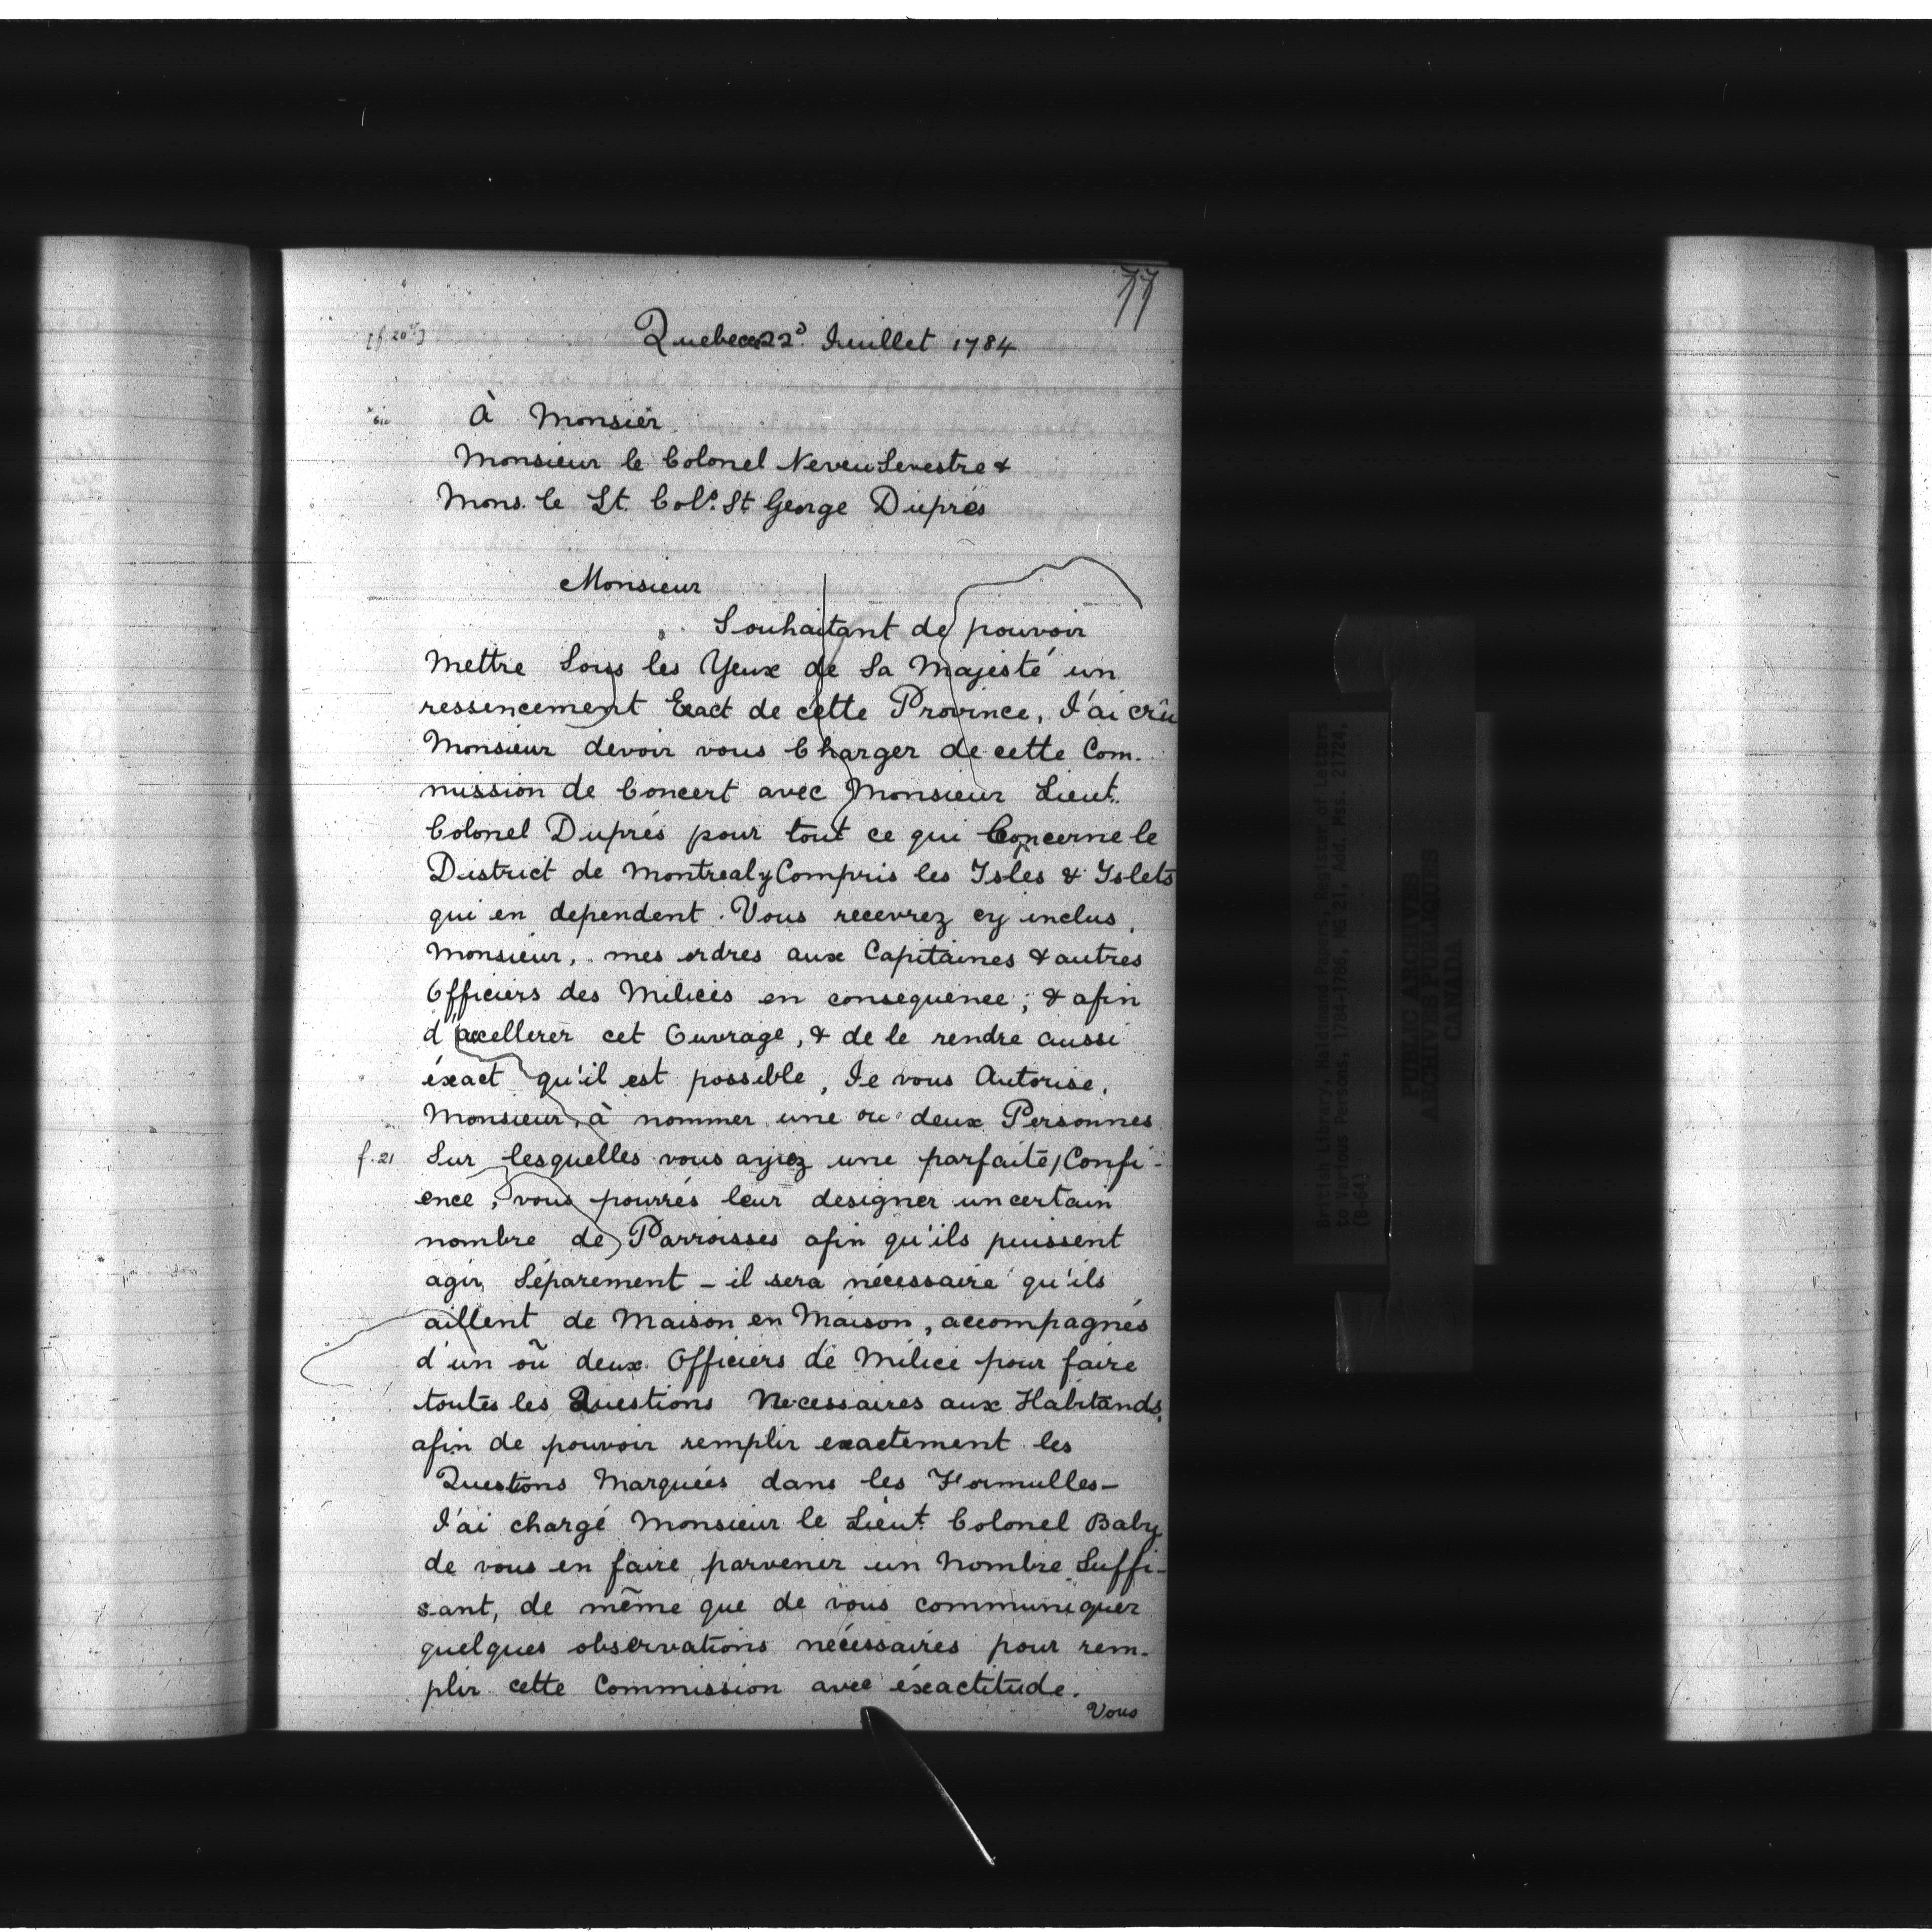 77
[f 20v]
Quebec 22d Juillet 1784
sic
À Monsiër
Monsieur le Colonel Neveu Sevestre &
Mons. le Lt. Col. St George Duprés
Monsieur
Souhaitant de pouvoir
Mettre Sous les Yeux de Sa Majesté un
ressencement Exact de cette Province, J'ai crû
Monsieur devoir vous Charger de cette Com-
mission de Concert avec Monsieur Lieut.
Colonel Duprés pour tout ce qui Concerne le
District de Montreal y Compris les Isles & Islets
qui en dependent. Vous recevrez cy inclus,
Monsieur, mes ordres aux Capitaines & autres
Officiers des Milices en consequence; & afin
d'accellerer cet Ouvrage, & de le rendre aussi
éxact qu'il est possible, Je vous Autorise,
Monsieur, à nommer une ou deux Personnes
f. 21
Sur lesquelles vous ayiez une parfaite Confi-
ence, vous pourrés leur designer un certain
nombre de Parroisses afin qu'ils puissent
agir Séparement - il sera nécessaire qu'ils
aillent de Maison en Maison, accompagnés
d'un oû deux Officiers de Milice pour faire
toutes les Questions Necessaires aux Habitands,
afin de pouvoir remplir exactement les
Questions Marquées dans les Formulles-
J'ai chargé Monsieur le Lieut. Colonel Baby
de vous en faire parvenir un Nombre Suffi-
sant, de même que de vous communiquer
quelques observations necessaires pour rem-
plir cette Commission avec éxactitude.
Vous
British Library, Haldimand Papers, Register of Letters
to Various Persons, 1784-1786, MG 21, Add. Mss. 21724,
(B-64)
PUBLIC ARCHIVES
ARCHIVES PUBLIQUES
CANADA